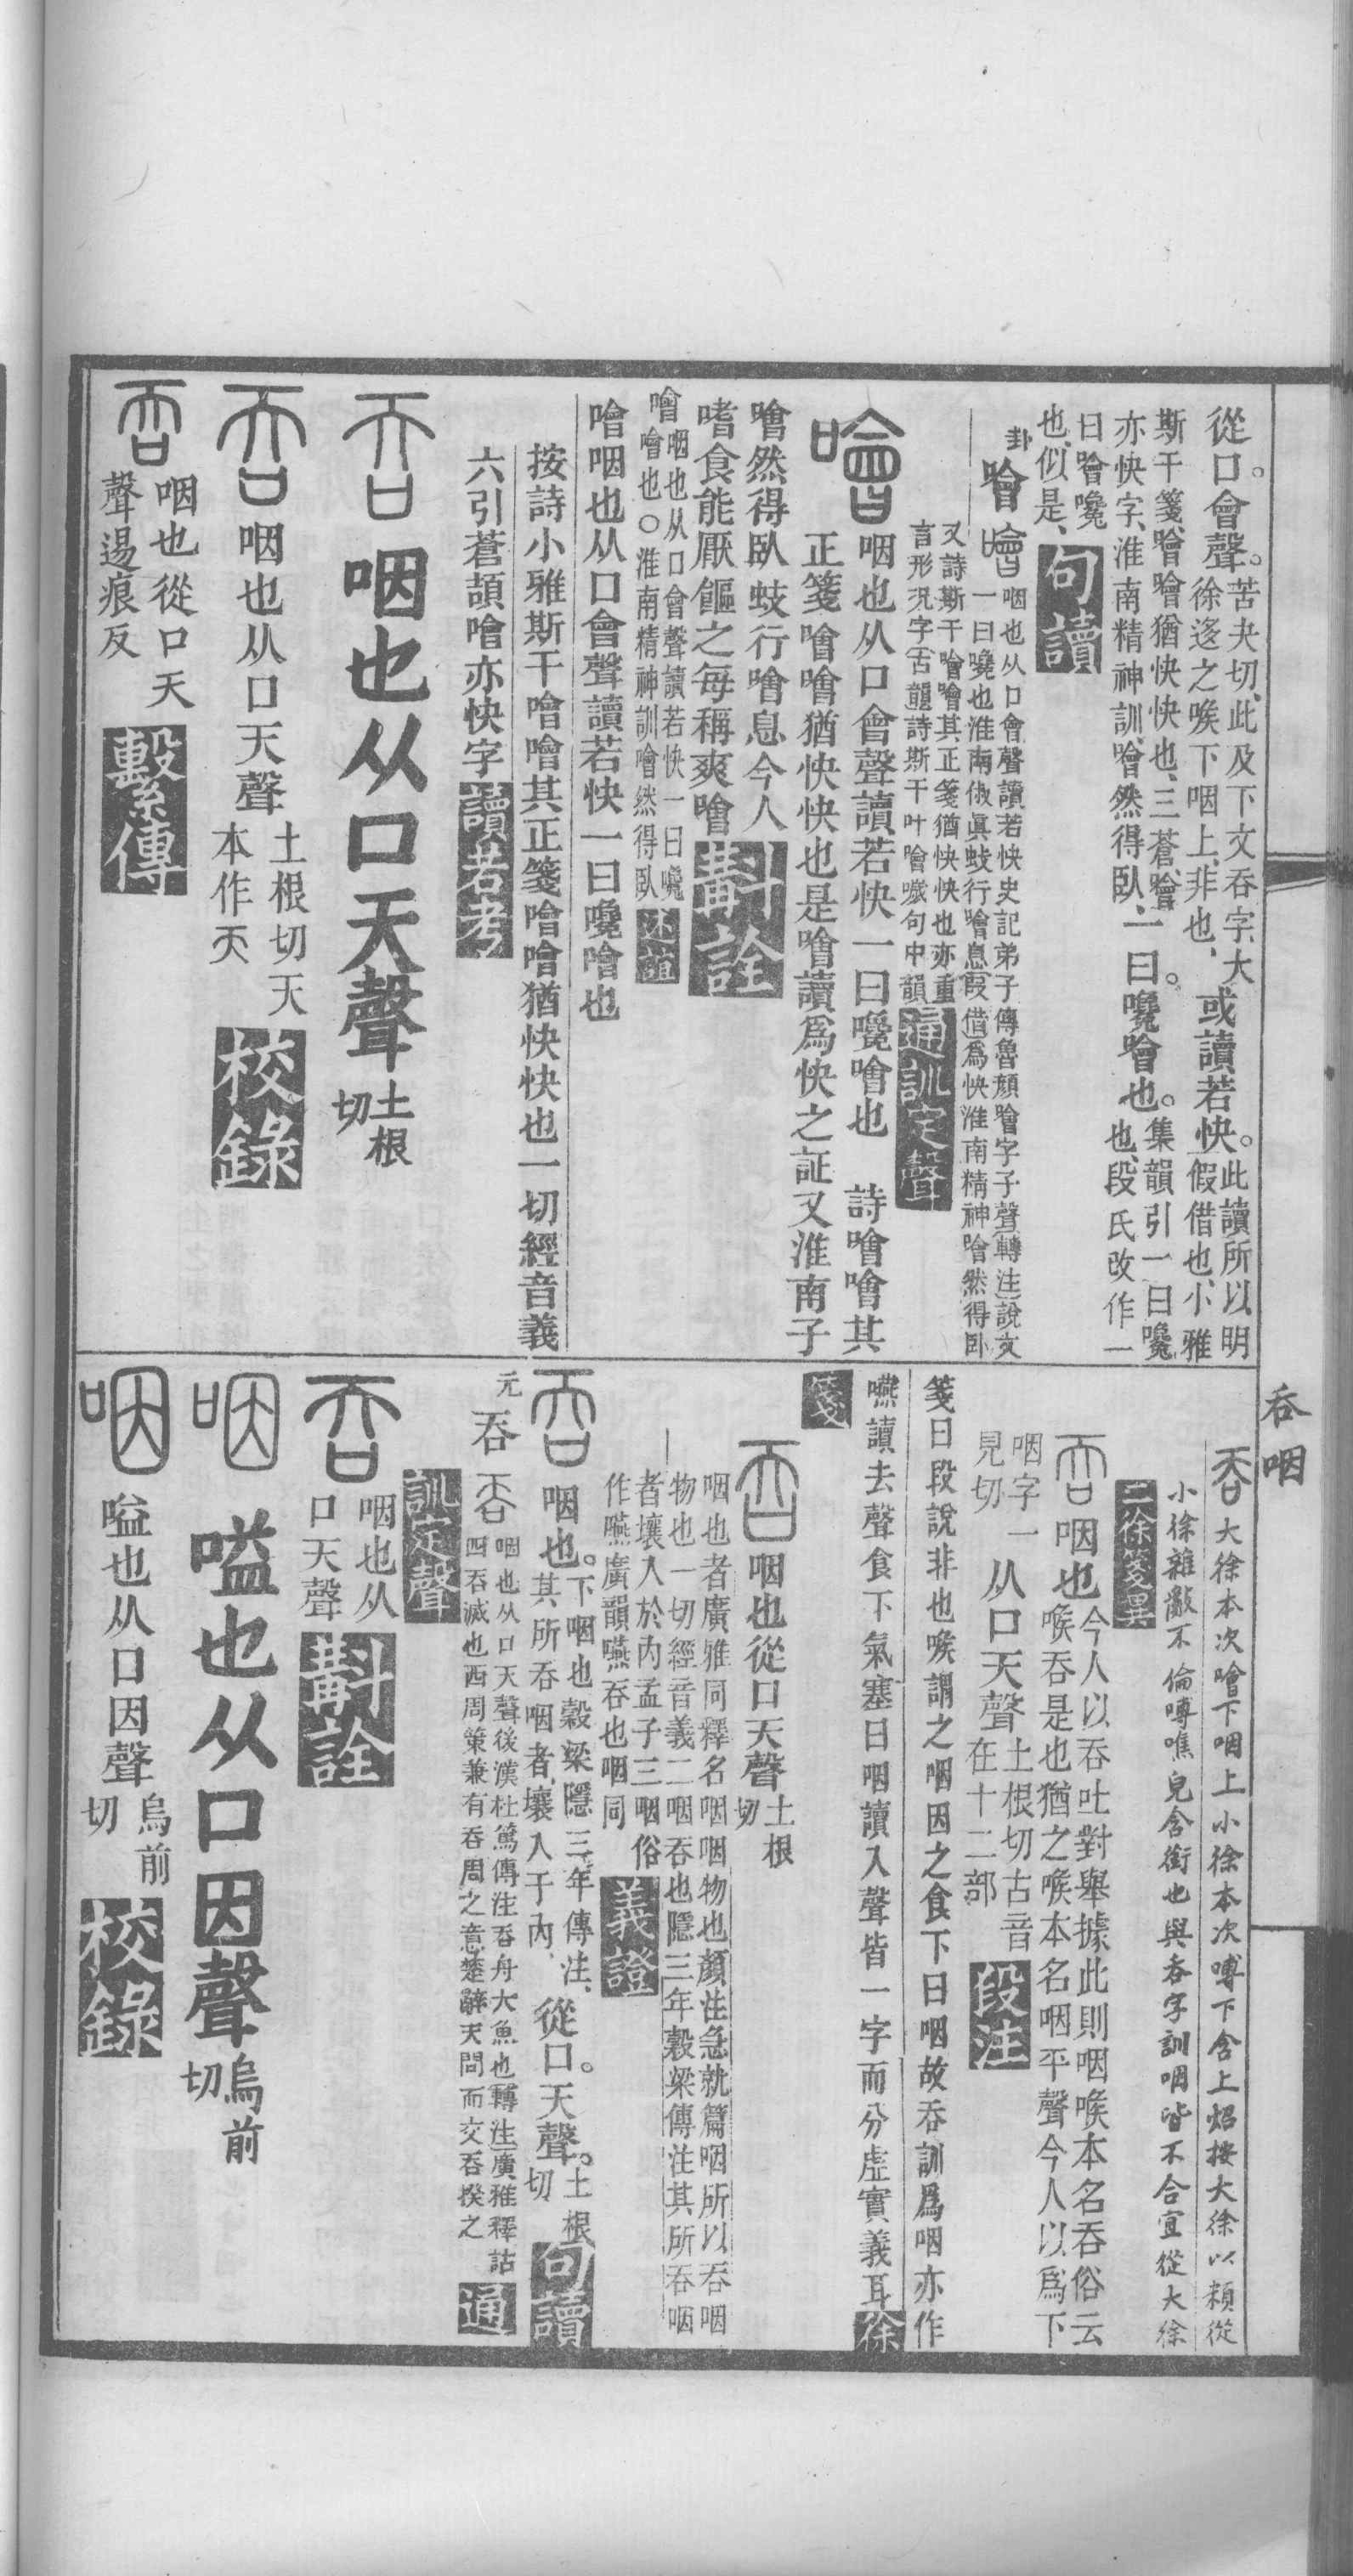 從口。會聲。苦夬切、此及下文吞字、大徐迻之喉下咽上、非也、或讀若快。此讀所以明假借也、小雅
斯干箋、噲噲猶快快也、三蒼、噲亦快字、淮南精神訓、噲然得臥、一曰。嚵噲也。集韻引一曰嚵也、段氏改作一
曰噲嚵也、似是、句讀
卦 噲 咽也从口會聲讀若快史記弟子傳魯顏噲字子聲轉注說文一曰嚵也淮南俶眞蚑行噲息假借爲快淮南精神噲然得卧
又詩斯干噲噲其正箋猶快快也亦重言形況字古韻詩斯干叶噲噦句中韻通訓定聲
咽也从口會聲讀若快一曰嚵噲也 詩噲噲其
正箋噲噲猶快快也是噲讀爲快之証又淮南子
噲然得臥蚑行噲息今人
嗜食能厭饇之每稱爽噲斠詮
噲咽也从口會聲讀若快一曰嚵噲也○淮南精神訓噲然得臥
噲咽也从口會聲讀若快一曰嚵噲也
按詩小雅斯干噲噲其正箋噲噲猶快快也一切經音義
六引蒼頡噲亦快字讀若考
吞 咽也从口天聲土根切
吞 咽也从口天聲土根切天本作兲校錄
吞 咽也從口天聲遏痕反繫傳
吞咽
吞 大徐本次噲下咽上小徐本次嗼下含上炤按大徐以類從
小徐雜厰不倫嗼噍皃含銜也與吞字訓咽皆不合宜從大徐
二徐箋異
吞 咽也今人以吞吐對舉據此則咽喉本名吞俗云喉吞是也猶之喉本名咽平聲今人以爲下
咽字一見切从口天聲土根切古音在十二部段注
箋曰段說非也喉謂之咽因之食下曰咽故吞訓爲咽亦作
嚥讀去聲食下气塞曰咽讀入聲皆一字而分虛實義耳徐
箋
吞 咽也從口天聲土根切
咽也者廣雅同釋名咽咽物也顏注急就篇咽所以吞咽物也一切經音義二咽吞也隱三年穀梁傳注其所吞咽
者壤入於內孟子三咽俗作嚥廣韻嚥吞也咽同義證
吞 咽也。下咽也穀梁隱三年傳注、其所吞咽者、壤入于內、從口。天聲。土根切句讀
元 吞 咽也从口天聲後漢杜篤傳注吞舟大魚也轉注廣雅釋詁四吞滅也西周策兼有吞周之意楚辭天問而交吞揆之通
訓定聲
吞 咽也从口天聲斠詮
咽 嗌也从口因聲烏前切
咽 嗌也从口因聲烏前切校錄